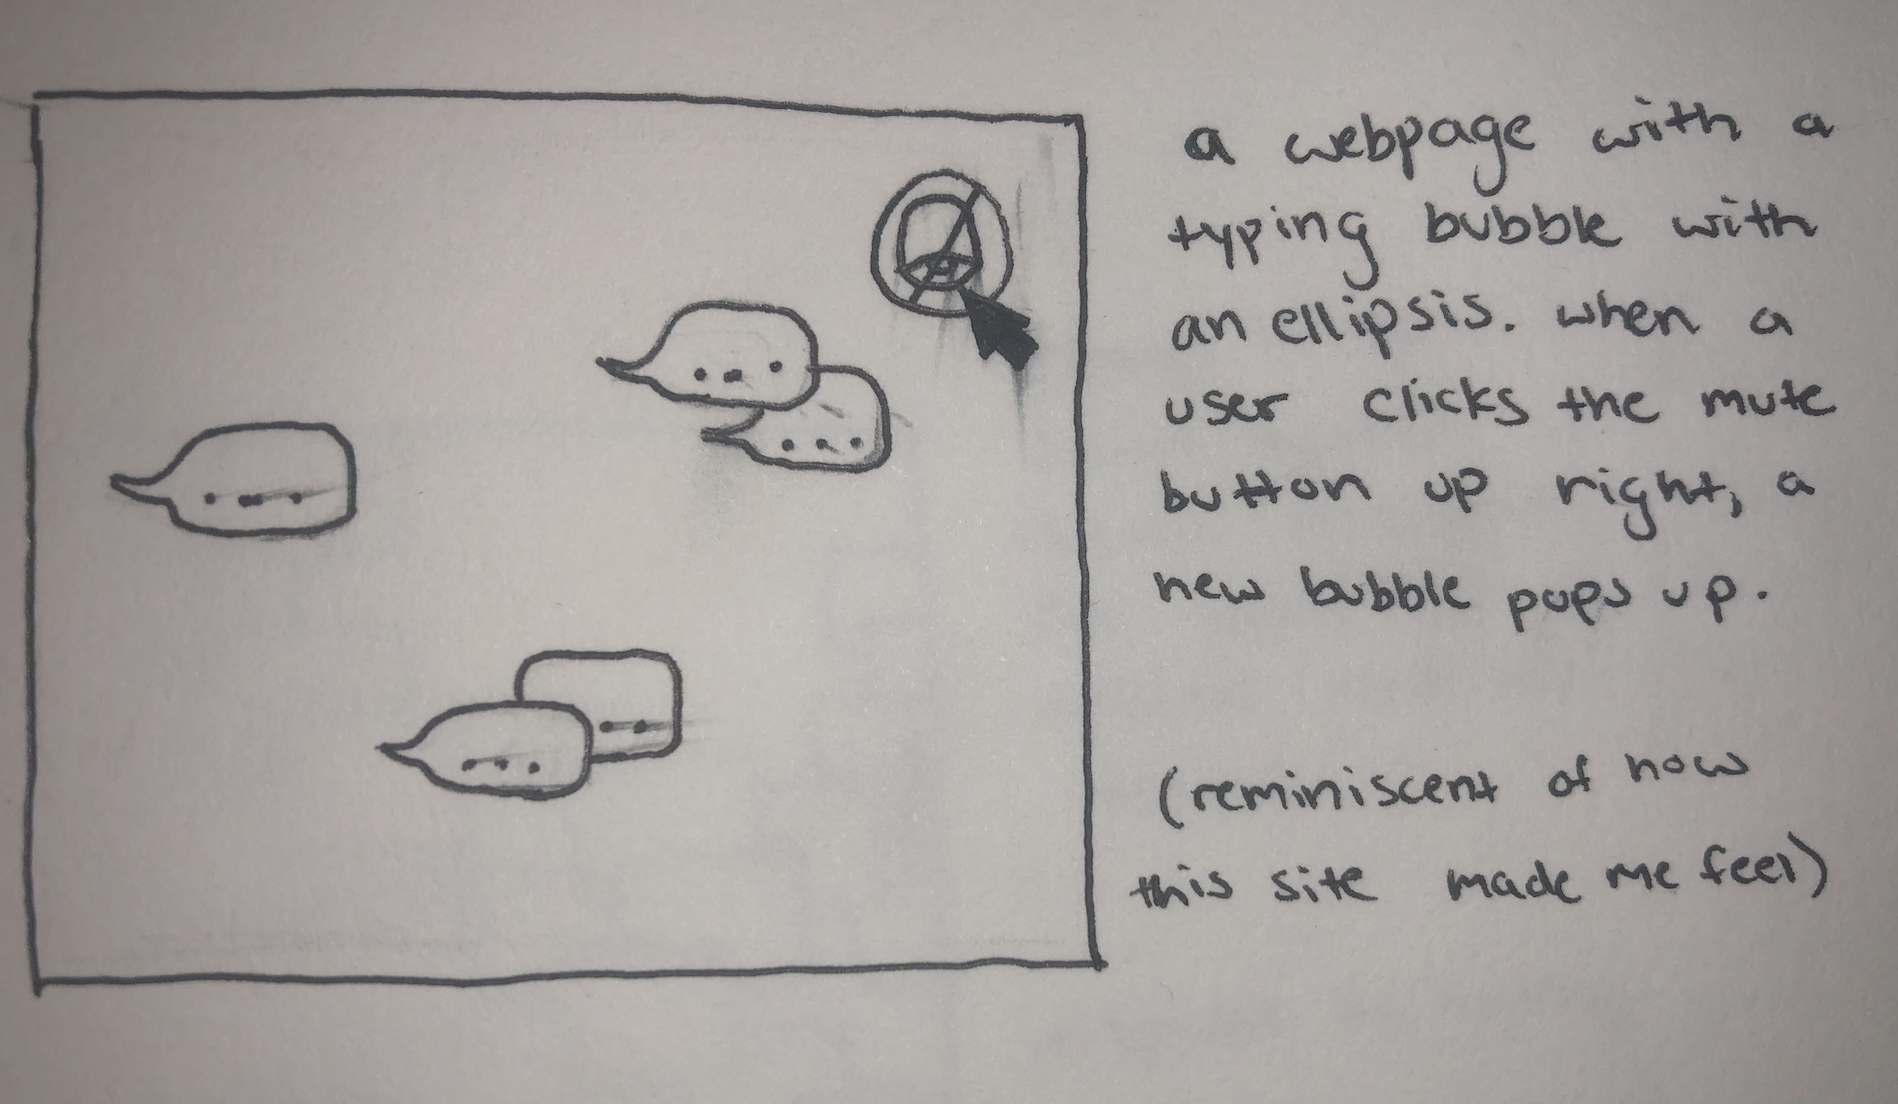 a webpage with a
typing bubble with
an ellipsis. when a
user clicks the mute
button up right, a
new bubble pops up.
(reminiscent of how
this site made me feel)